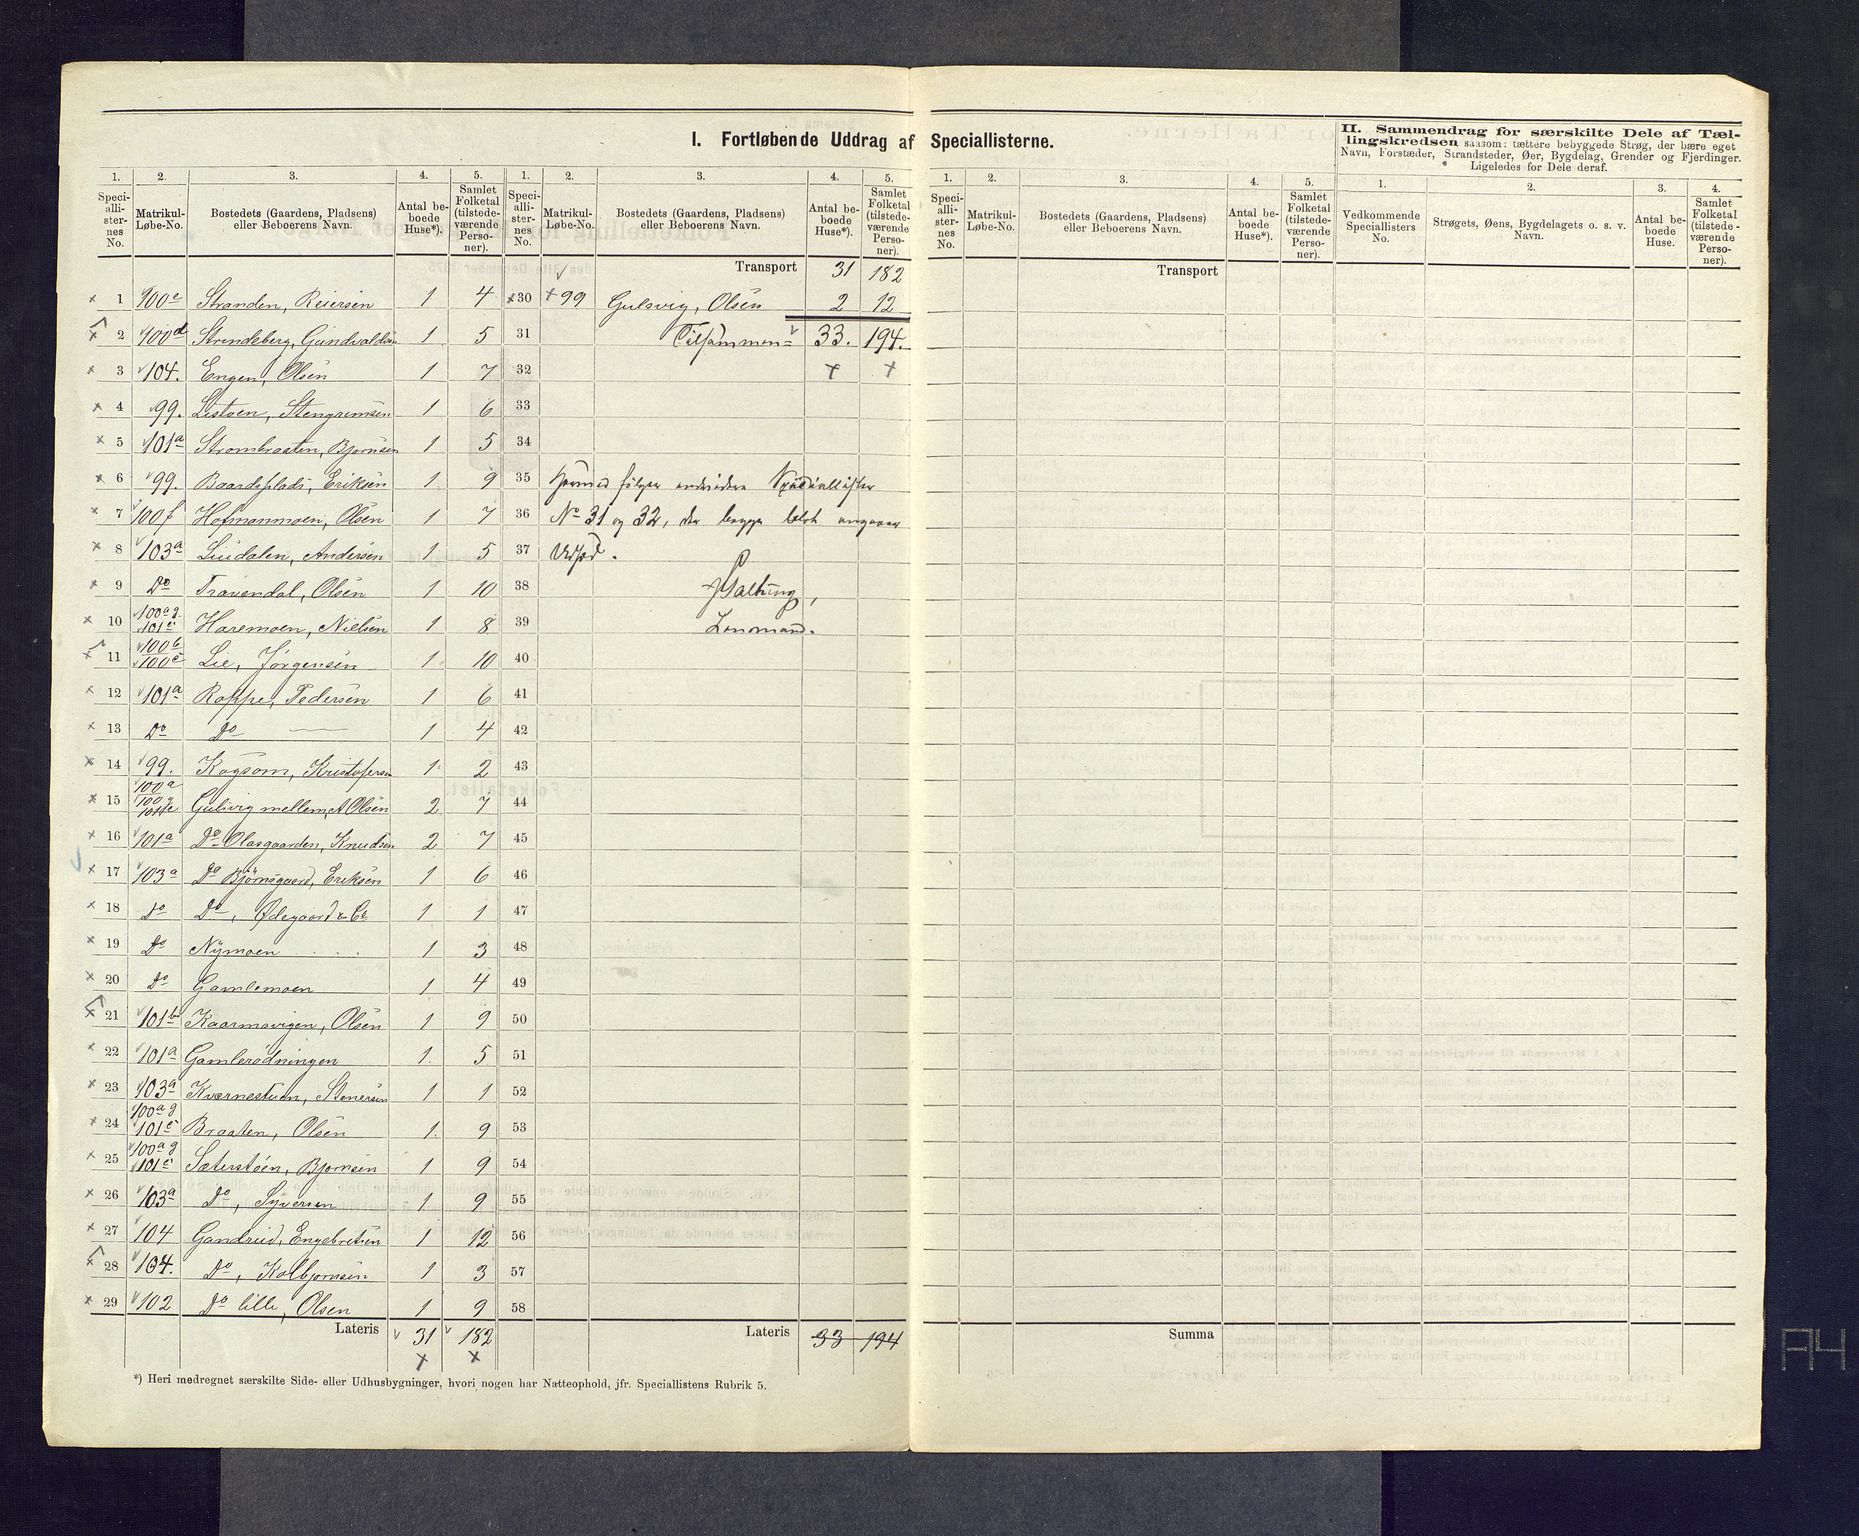 I. Fortløbende Uddrag af Speciallisterne.
II. Sammendrag for særskilte Dele af Tæl-
lingskredsen saasom: tættere bebyggede Strøg, der bære eget
Navn, Forstæder, Strandsteder, Øer, Bygdelag, Grender og Fjerdinger.
Ligeledes for Dele deraf.
1. 2. 3. 4. 5. 1. 2. 3. 4. 5. 1. 2. 3. 4. 5. 1. 2. 3. 4.
Speciallisternes No. Matrikul-Løbe-No. Bostedets (Gaardens, Pladsens) eller Beboerens Navn. Antal beboede Huse*). Samlet Folketal (tilstedeværende Personer).
Speciallisternes No. Matrikul-Løbe-No. Bostedets (Gaardens, Pladsens) eller Beboerens Navn. Antal beboede Huse*). Samlet Folketal (tilstedeværende Personer).
Speciallisternes No. Matrikul-Løbe-No. Bostedets (Gaardens, Pladsens) eller Beboerens Navn. Antal beboede Huse*). Samlet Folketal (tilstedeværende Personer).
Vedkommende Speciallisters No. Strøgets, Øens, Bygdelagets o. s. v. Navn. Antal beboede Huse. Samlet Folketal (tilstedeværende Personer).
1 100c Stranden, Reiersen 1 4
2 100d Strandeberg, Gundvaldsen 1 5
3 104. Engen, Olsen 1 7
4 99. Listven, Stengrimsen 1 6
5 101a Strombraaten, Bjørnsen 1 5
6 99. Baardsplads, Eriksen 1 9
7 100f Hofmanmoen, Olsen 1 7
8 103a Liudalen, Andersen 1 5
9 Do Travendal, Olsen 1 10
10 100a g 101c Haremoen, Nielsen 1 8
11 100b 100e Lie, Jørgensen 1 10
12 101a Roppe, Pedersen 1 6
13 Do Do 1 4
14 99. Kogsom, Kristofersen 1 2
15 100a 100g 101c Gulsvig mellem, A Olsen 2 7
16 101a Do Olasgaarden, Knudsen 2 7
17 103a Do Bjørnsgaard, Eriksen 1 6
18 Do Do, Ødegaard 1 1
19 Do Nymoen 1 3
20 Do Gamlemoen 1 4
21 101b Kaarmovigen, Olsen 1 9
22 101a Gamlerødningen 1 5
23 103a Kværnestuen, Stenersen 1 1
24 100a g 101c Braaten, Olsen 1 9
25 100a g 101c Sæterstøen, Bjornsen 1 9
26 103a Do, Syversen 1 9
27 104 Gandrud, Engebretsen 1 12
28 104. Do, Kolbjornsen 1 3
29 102 Do lille, Olsen 1 9
Lateris 31 182
Transport 31 182
30 99 Gulsvig, Olsen 2 12
31 Tilsammen = 33. 194.
32
33
34
35 Hermed følger Speciallister
36 No 31 og 32, der begge
37
38
39 Lensmand.
40
41
42
43
44
45
46
47
48
49
50
51
52
53
54
55
56
57
58
Lateris 33 194
Transport
Summa
*) Heri medregnet særskilte Side- eller Udhusbygninger, hvori nogen har Natteophold, jfr. Speciallistens Rubrik 5.
A4